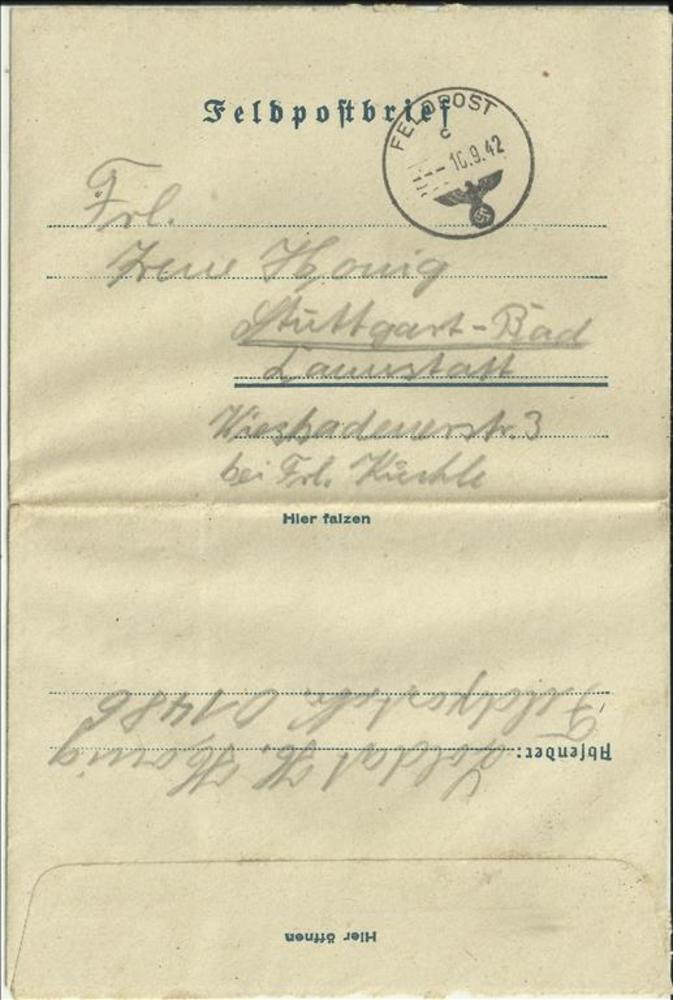 Feldpostbrief
FELDPOST
c
10.9.42
Frl.
Irene Honig
Stuttgart-Bad
Cannstatt
Wiesbadenerstr. 3
bei Frl. Küchle
Hier falzen
Absender: Soldat H. Honig
Feldpostnr. 01486
Hier öffnen